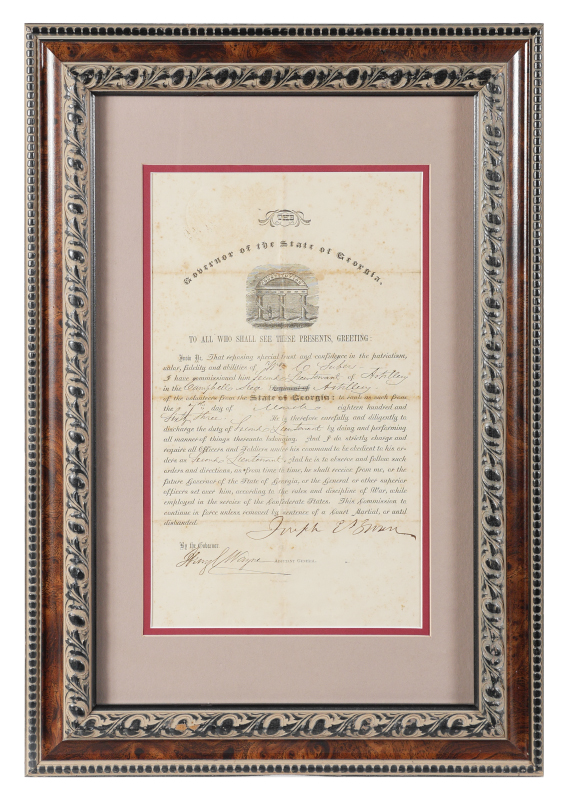 THE
Governor of the State of Georgia,
TO ALL WHO SHALL SEE THESE PRESENTS, GREETING:
Know Ye, That reposing special trust and confidence in the patriotism,
valor, fidelity and abilities of Wm C.
I have commissioned him Second Lieutenant of Artillery
in the Campbell Regiment of Artillery
of the volunteers from the State of Georgia; to rank as such from
the day of March eighteen hundred and
Sixty Three He is therefore carefully and diligently to
discharge the duty of Second Lieutenant by doing and performing
all manner of things thereunto belonging. And I do strictly charge and
require all Officers and Soldiers under his command to be obedient to his or-
ders as Second Lieutenant And he is to observe and follow such
orders and directions, as from time to time, he shall receive from me, or the
future Governor of the State of Georgia, or the General or other superior
officers set over him, according to the rules and discipline of War, while
employed in the service of the Confederate States. This Commission to
continue in force unless removed by sentence of a Court Martial, or until
disbanded.
Joseph E Brown
By the Governor
Henry C Wayne ADJUTANT GENERAL